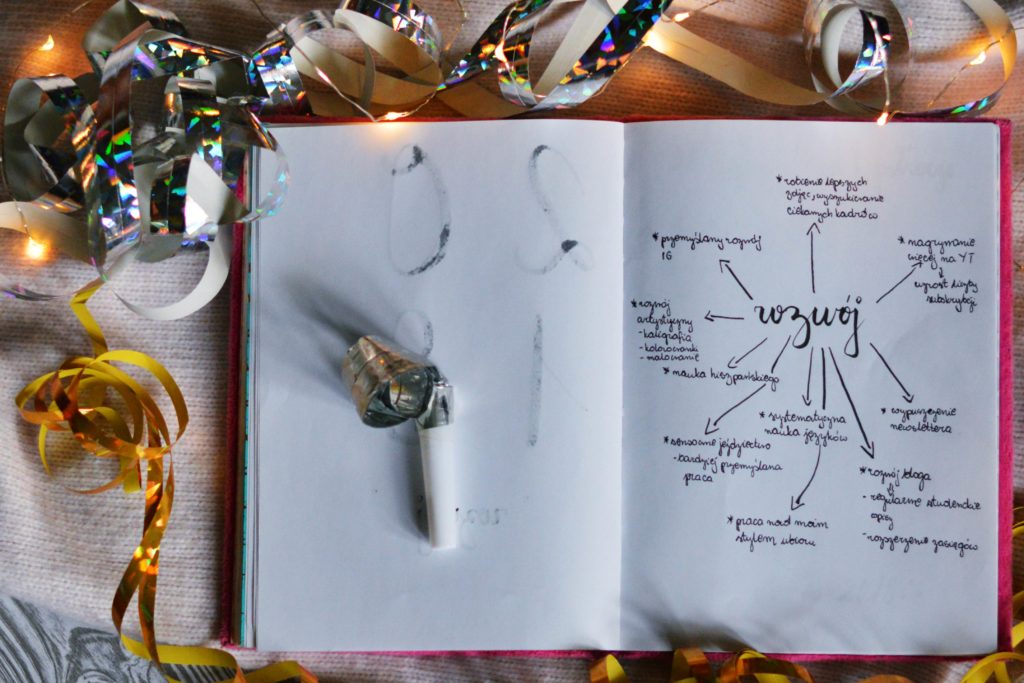 *robienie lepszych
zdjęć, wyszukiwanie
ciekawych kadrów
*przemyślany rozwój
IG
*nagrywanie
więcej na YT
wzrost liczby
subskrybcji
rozwój
*rozwój
artystyczny
-kaligrafia
-kolorowanki
-malowanie
*nauka hiszpańskiego
*systematyczna
nauka języków
*wypuszczenie
newslettera
*sensowne jeździectwo
-bardziej przemyślana
praca
*rozwój bloga
-regularne studenckie
wpisy
-rozszerzenie zasięgów
*praca nad moim
stylem ubioru